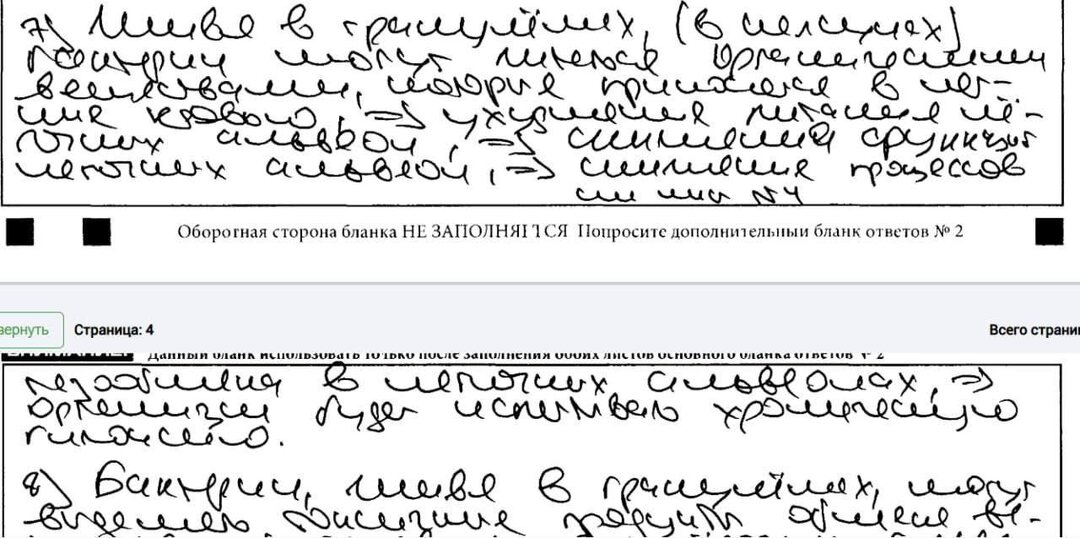 7) Живя в гранулёмах, (в легких)
бактерии могут питаться органическими
веществами, которые приносятся в лег-
кие кровью, => ухудшение питания лё-
гочных альвеол, => снижения функций
легочных альвеол, => снижение процессов
см лист №4
Оборотная сторона бланка НЕ ЗАПОЛНЯЕТСЯ Попросите дополнительный бланк ответов № 2
вернуть Страница: 4 Всего страни
Данный бланк использовать только после заполнения обоих листов основного бланка ответов № 2
газообмена в легочных альвеолах, =>
организм будет испытывать хроническую
гипоксию.
8) Бактерии, живя в гранулёмах, могут
выделять токсичные продукты обмена ве-